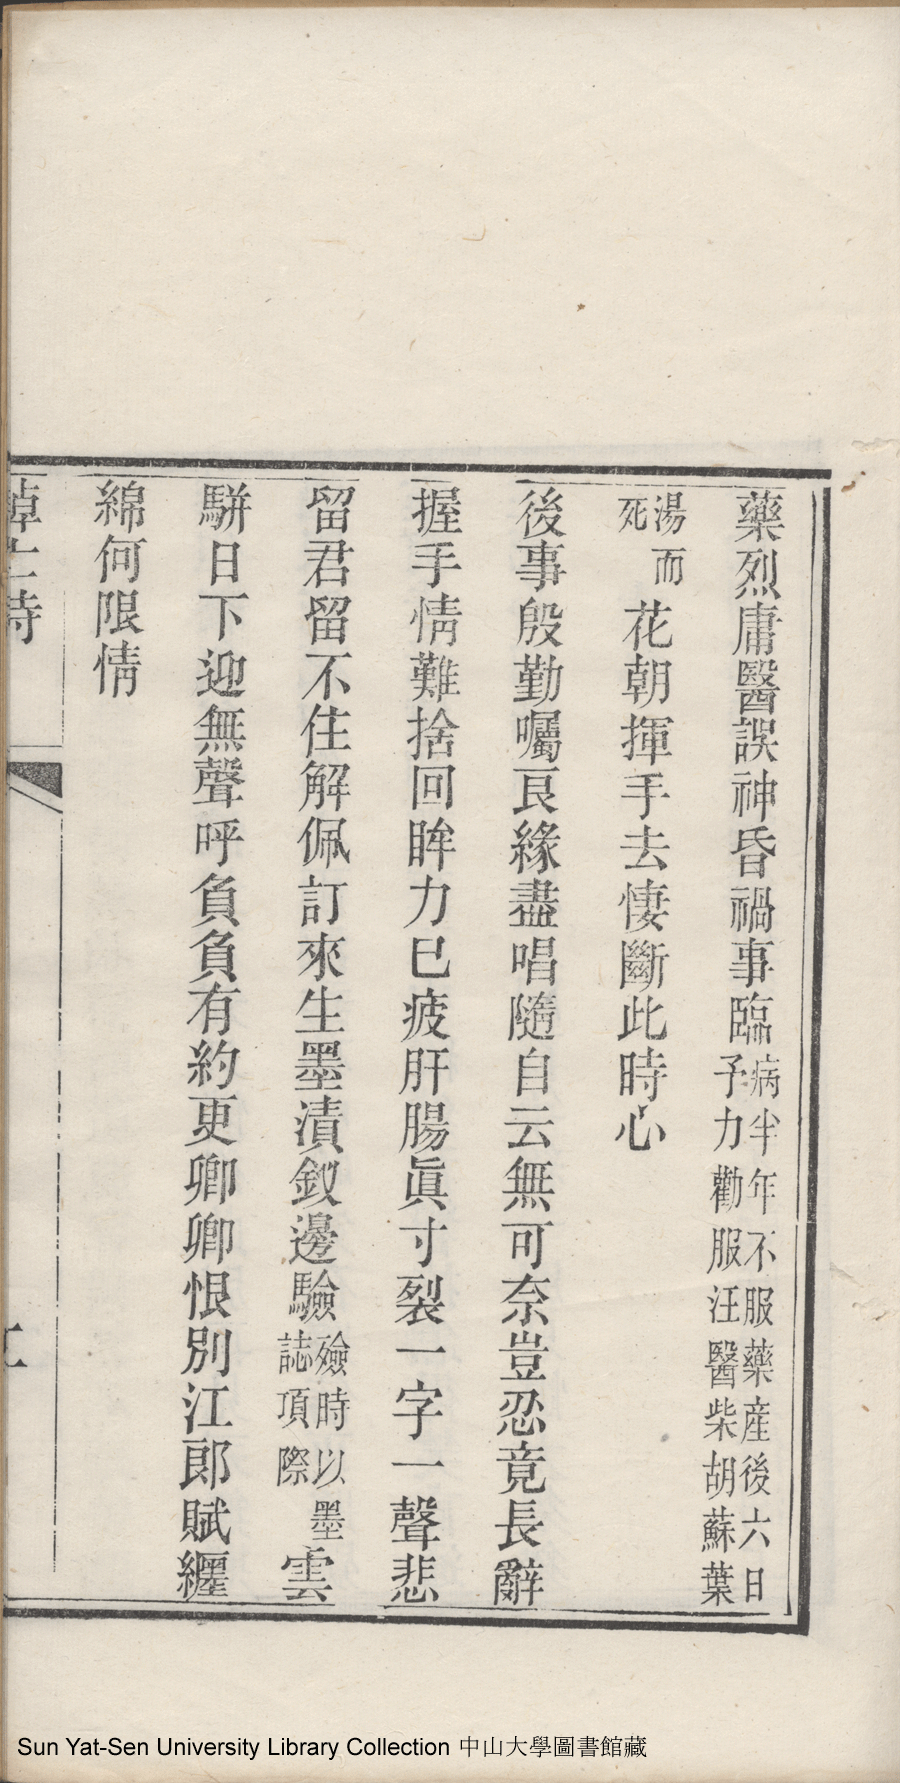 藥烈庸醫誤神昏禍事臨病半年不服藥産後六日予力勸服汪醫柴胡蘇葉
湯而死花朝揮手去悽斷此時心
後事殷勤囑良緣盡唱隨自云無可奈豈忍竟長辭
握手情難捨回眸力已疲肝腸眞寸裂一字一聲悲
留君留不住解佩訂來生墨漬釵邊驗殮時以墨誌項際雲
駢日下迎無聲呼負負有約更卿卿恨別江郎賦纒
綿何限情
悼亡詩
Sun Yat-Sen University Library Collection 中山大學圖書館藏